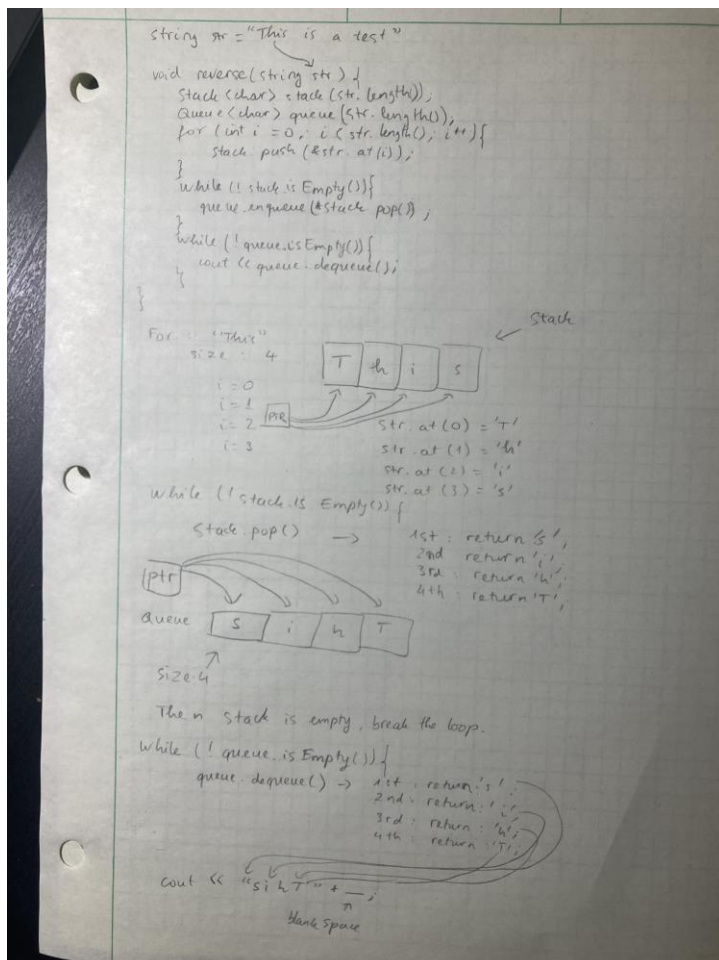 string str = "This is a test"
void reverse(string str) {
Stack<char> stack(str.length());
Queue<char> queue(str.length());
for (int i = 0; i < str.length(); i++){
stack.push(&str.at(i));
}
while (!stack.isEmpty()){
queue.enqueue(*stack.pop());
}
while (!queue.isEmpty()){
cout << queue.dequeue();
}
}
Stack
For : "This"
size : 4
T h i s
i = 0
i = 1
i = 2
i = 3
PTR
str.at(0) = 'T'
str.at(1) = 'h'
str.at(2) = 'i'
str.at(3) = 's'
while (!stack.is Empty()) {
stack.pop() -> 1st : return 's';
2nd return 'i';
3rd : return 'h';
4th : return 'T';
ptr
Queue s i h T
size 4
Then stack is empty, break the loop.
while (!queue.isEmpty()) {
queue.dequeue() -> 1st : return : 's';
2nd : return : 'i';
3rd : return : 'h';
4th : return : 'T';
cout << "sihT" + _ ;
blank space